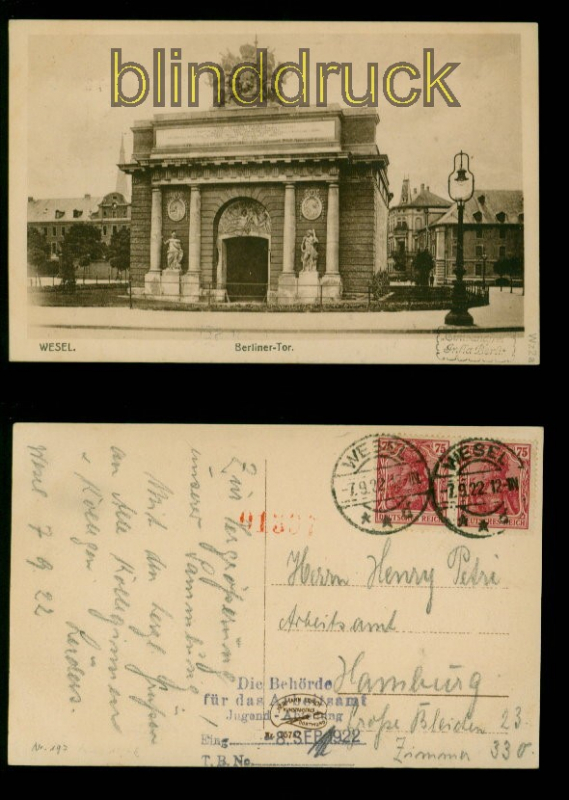 blinddruck
WESEL.
Berliner-Tor.
W228
Zur Vergrößerung
unserer Sammlung!
Mit den herzl. Grüßen
an Alle Kolleginnen
u. Kollegen
Wesel 7 9 22
WESEL
-7.9.22.12-1N
75
DEUTSCHES REICH
WESEL
-7.9.22.12-1N
75
DEUTSCHES REICH
91397
Herrn Henry Petri
Arbeitsamt
Hamburg
Große Bleichen 23
Zimmer 330.
Die Behörde
für das Arbeitsamt
Jugend-Abteilung
Eing. 8. SEP. 1922
T. B. No.